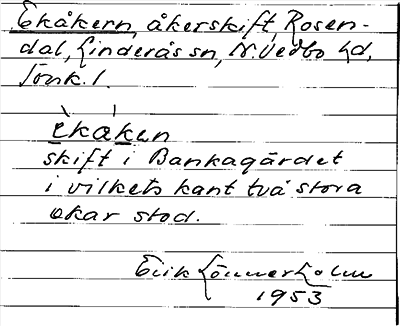 Ekåkern, åkerskift, Rosen-
dal, Linderås sn, N. Vedbo hd,
Jönk. l.
èkaḱen
skift i Bankagärdet
i vilkets kant två stora
ekar stod.
Erik Lönnerholm
1953